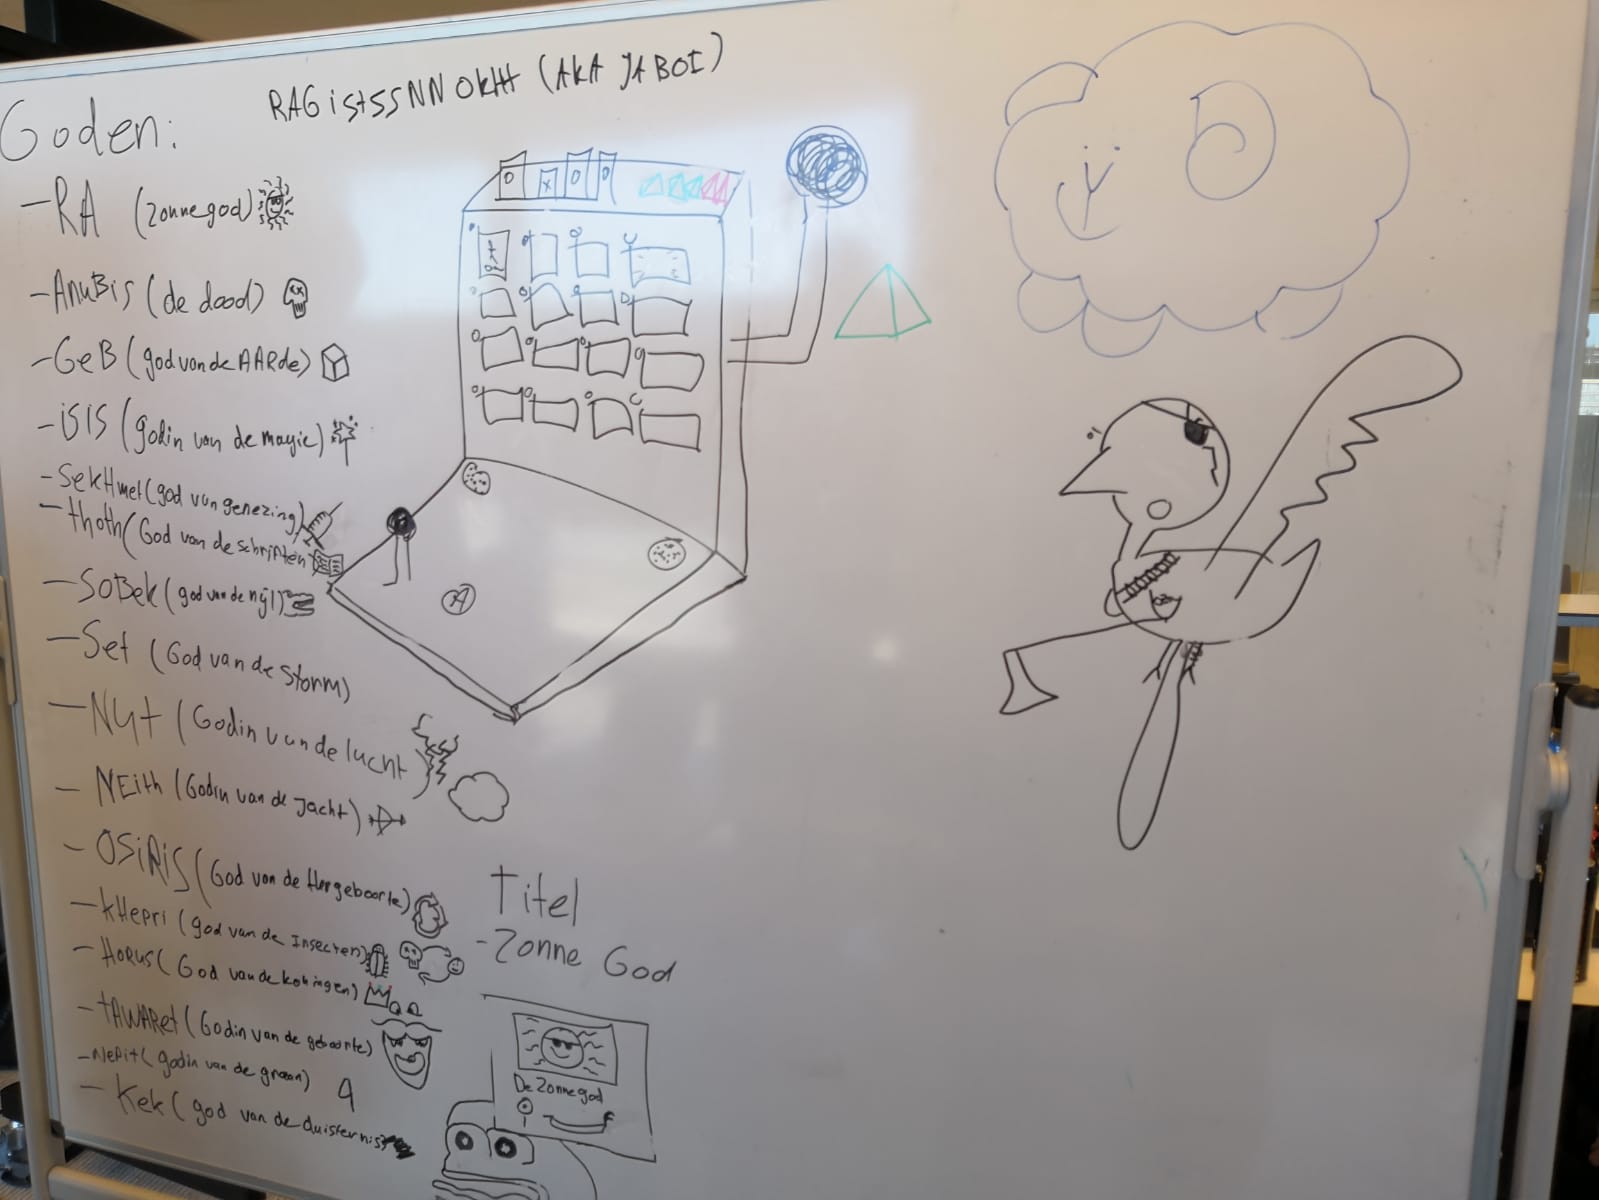 RAGistSSNNOkHt (AKA JABOI)
Goden:
- RA (zonnegod)
- AnuBis (de dood)
- GeB (god van de AARde)
- iSIS (godin van de magie)
- SekHmet (god van genezing)
- thoth (God van de schriften
- SoBek (god van de nijl)
- Set (God van de Storm)
- Nut (Godin van de lucht
- NEith (Godin van de Jacht)
- OSiRiS (God van de Hergeboorte)
- kHepri (god van de Insecten)
- HoRus (God van de koningen)
- tAWARet (Godin van de geboorte)
- NePit (godin van de graan)
- Kek (god van de duisternis)
Titel
- Zonne God
De Zonnegod